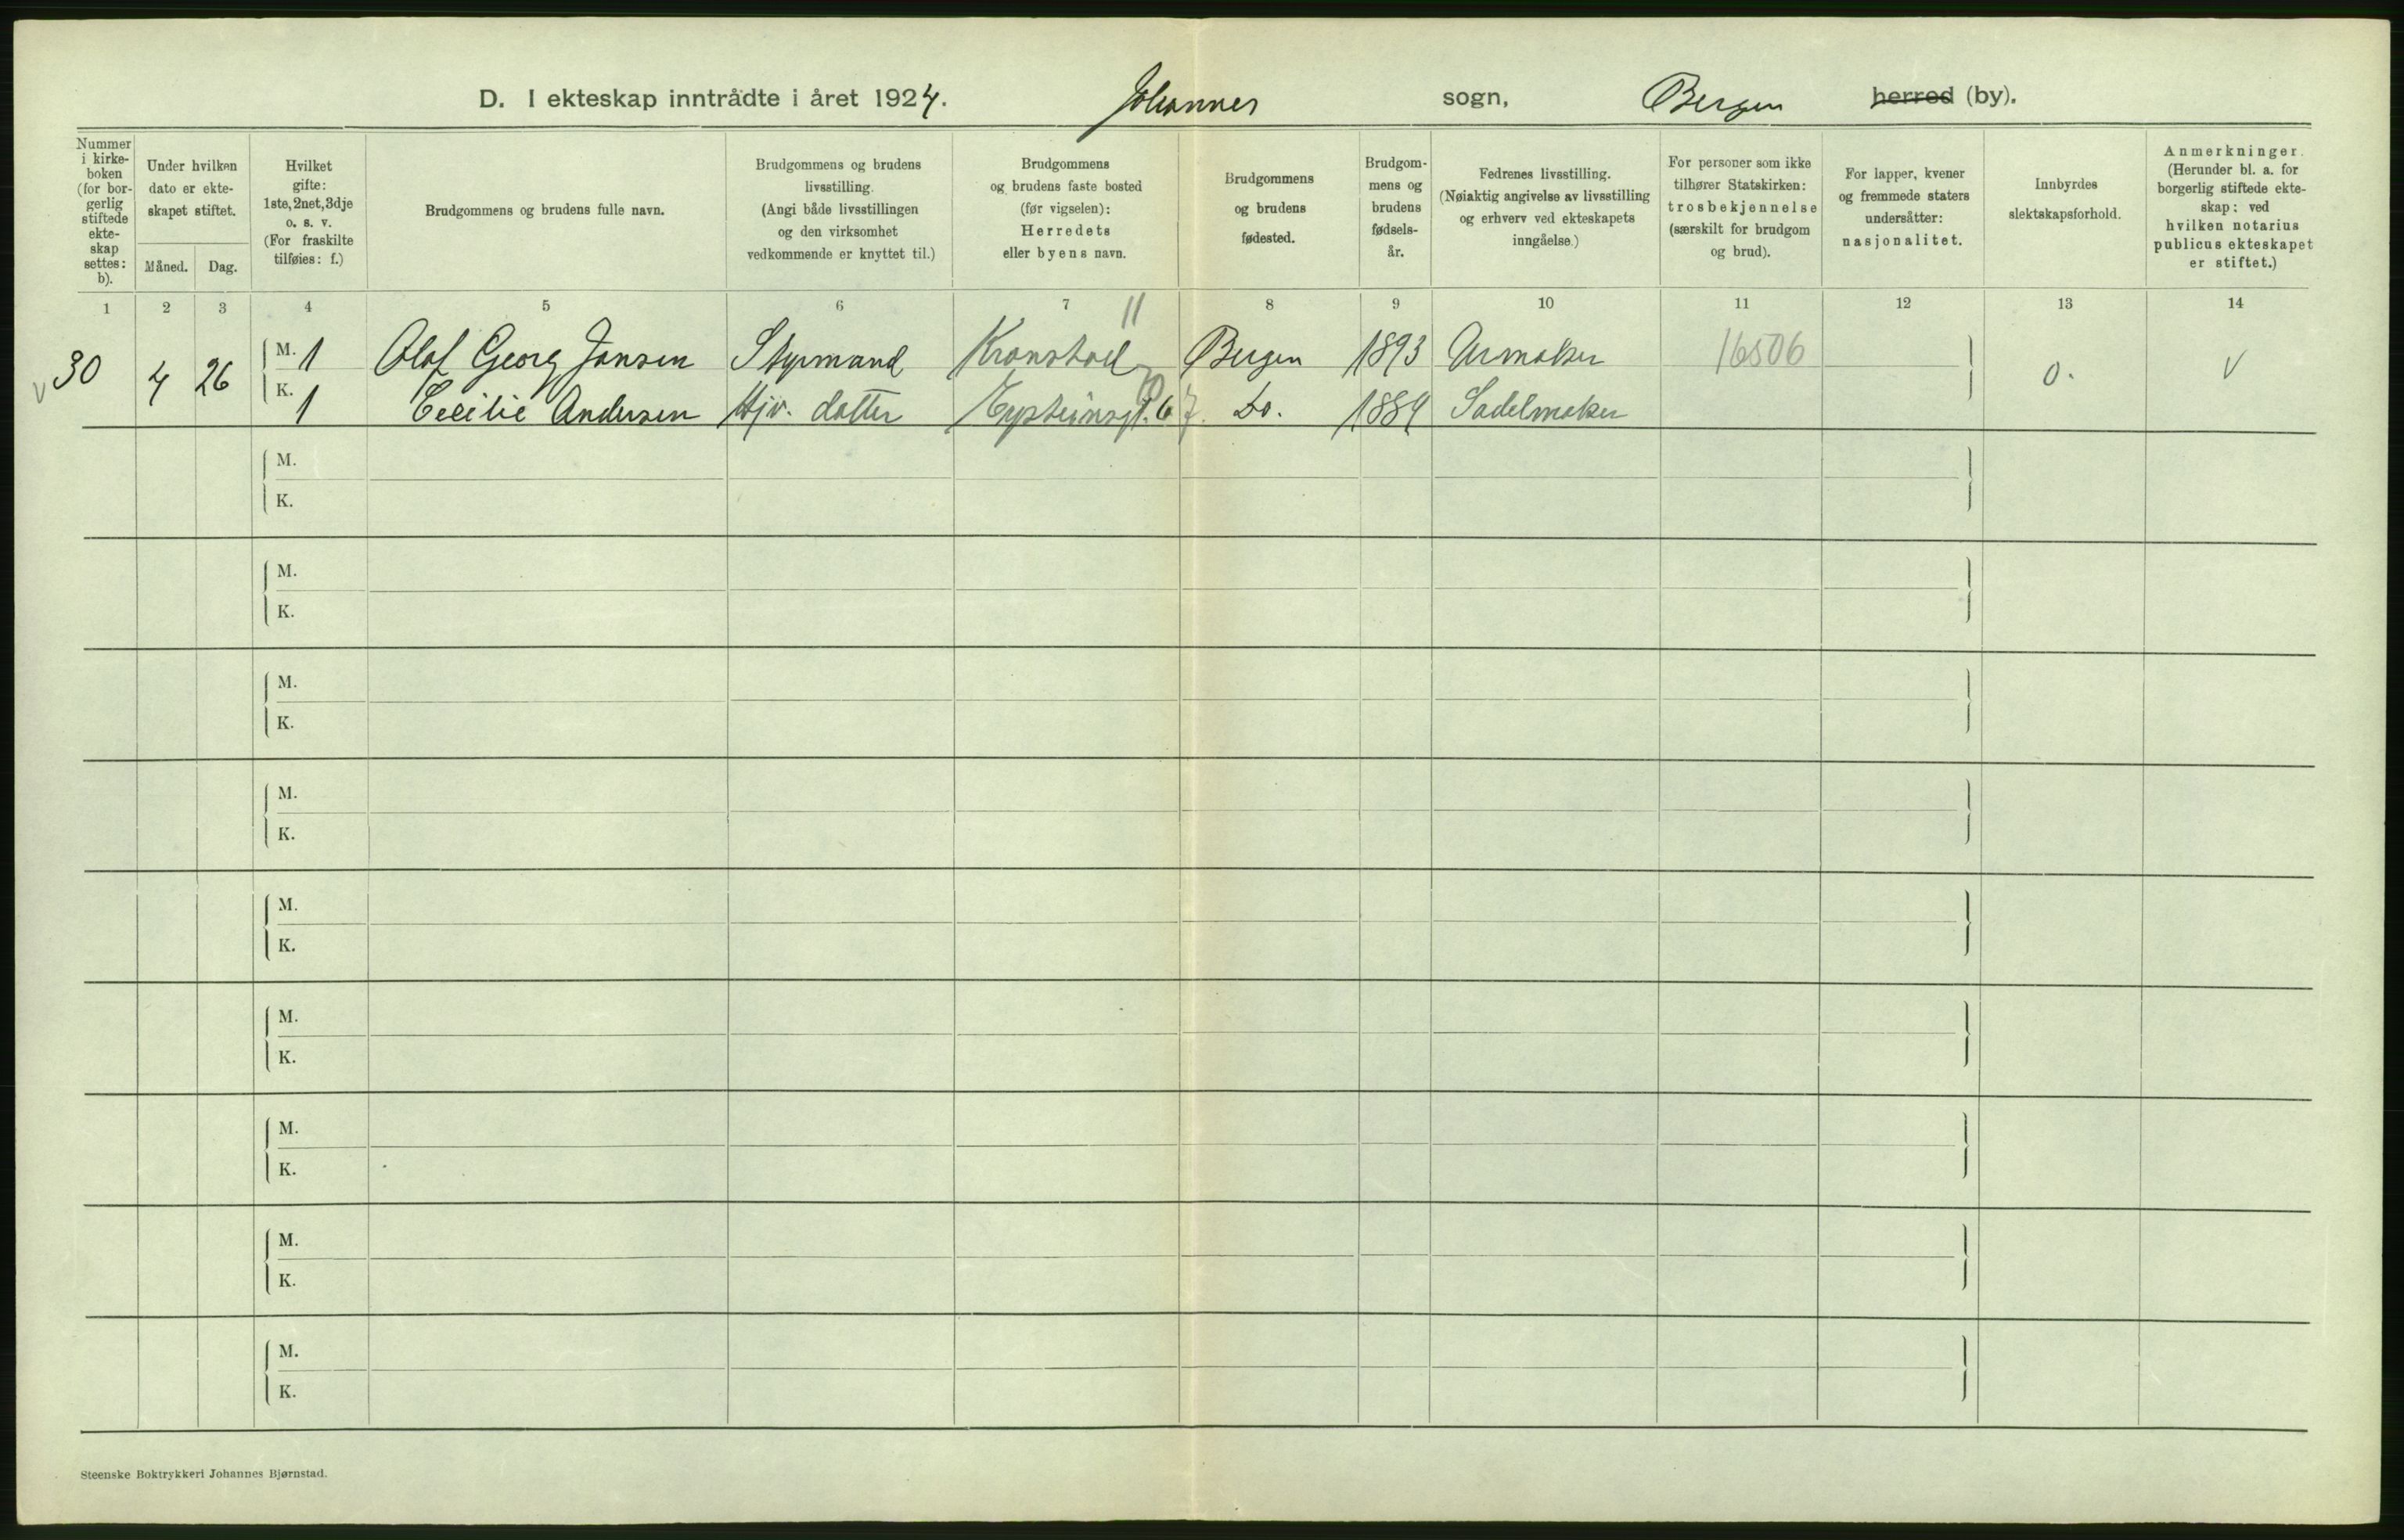 D. I ekteskap inntrådte i året 1924. Johannes sogn, Bergen herred (by).
Nummer i kirke-boken (for bor-gerlig stiftede ekte-skap settes: b).
Under hvilken dato er ekte-skapet stiftet.
Måned. Dag.
Hvilket gifte: 1ste, 2net, 3dje o. s. v. (For fraskilte tilføies: f.)
Brudgommens og brudens fulle navn.
Brudgommens og brudens livsstilling. (Angi både livsstillingen og den virksomhet vedkommende er knyttet til.)
Brudgommens og brudens faste bosted (før vigselen): Herredets eller byens navn.
Brudgommens og brudens fødested.
Brudgom-mens og brudens fødsels-år.
Fedrenes livsstilling. (Nøiaktig angivelse av livsstilling og erhverv ved ekteskapets inngåelse.)
For personer som ikke tilhører Statskirken: trosbekjennelse (særskilt for brudgom og brud).
For lapper, kvener og fremmede staters undersåtter: nasjonalitet.
Innbyrdes slektskapsforhold.
Anmerkninger. (Herunder bl. a. for borgerlig stiftede ekte-skap: ved hvilken notarius publicus ekteskapet er stiftet.)
1 2 3 4 5 6 7 8 9 10 11 12 13 14
11
30 4 26 M. 1 Olaf Georg Jansen Styrmand Kronstad Bergen 1893 Urmaker 16506 0. v
K. 1 Cecilie Andersen Hjv. datter Do. 1884 Sadelmaker
M.
K.
M.
K.
M.
K.
M.
K.
M.
K.
M.
K.
M.
K.
M.
K.
M.
K.
Steenske Boktrykkeri Johannes Bjørnstad.